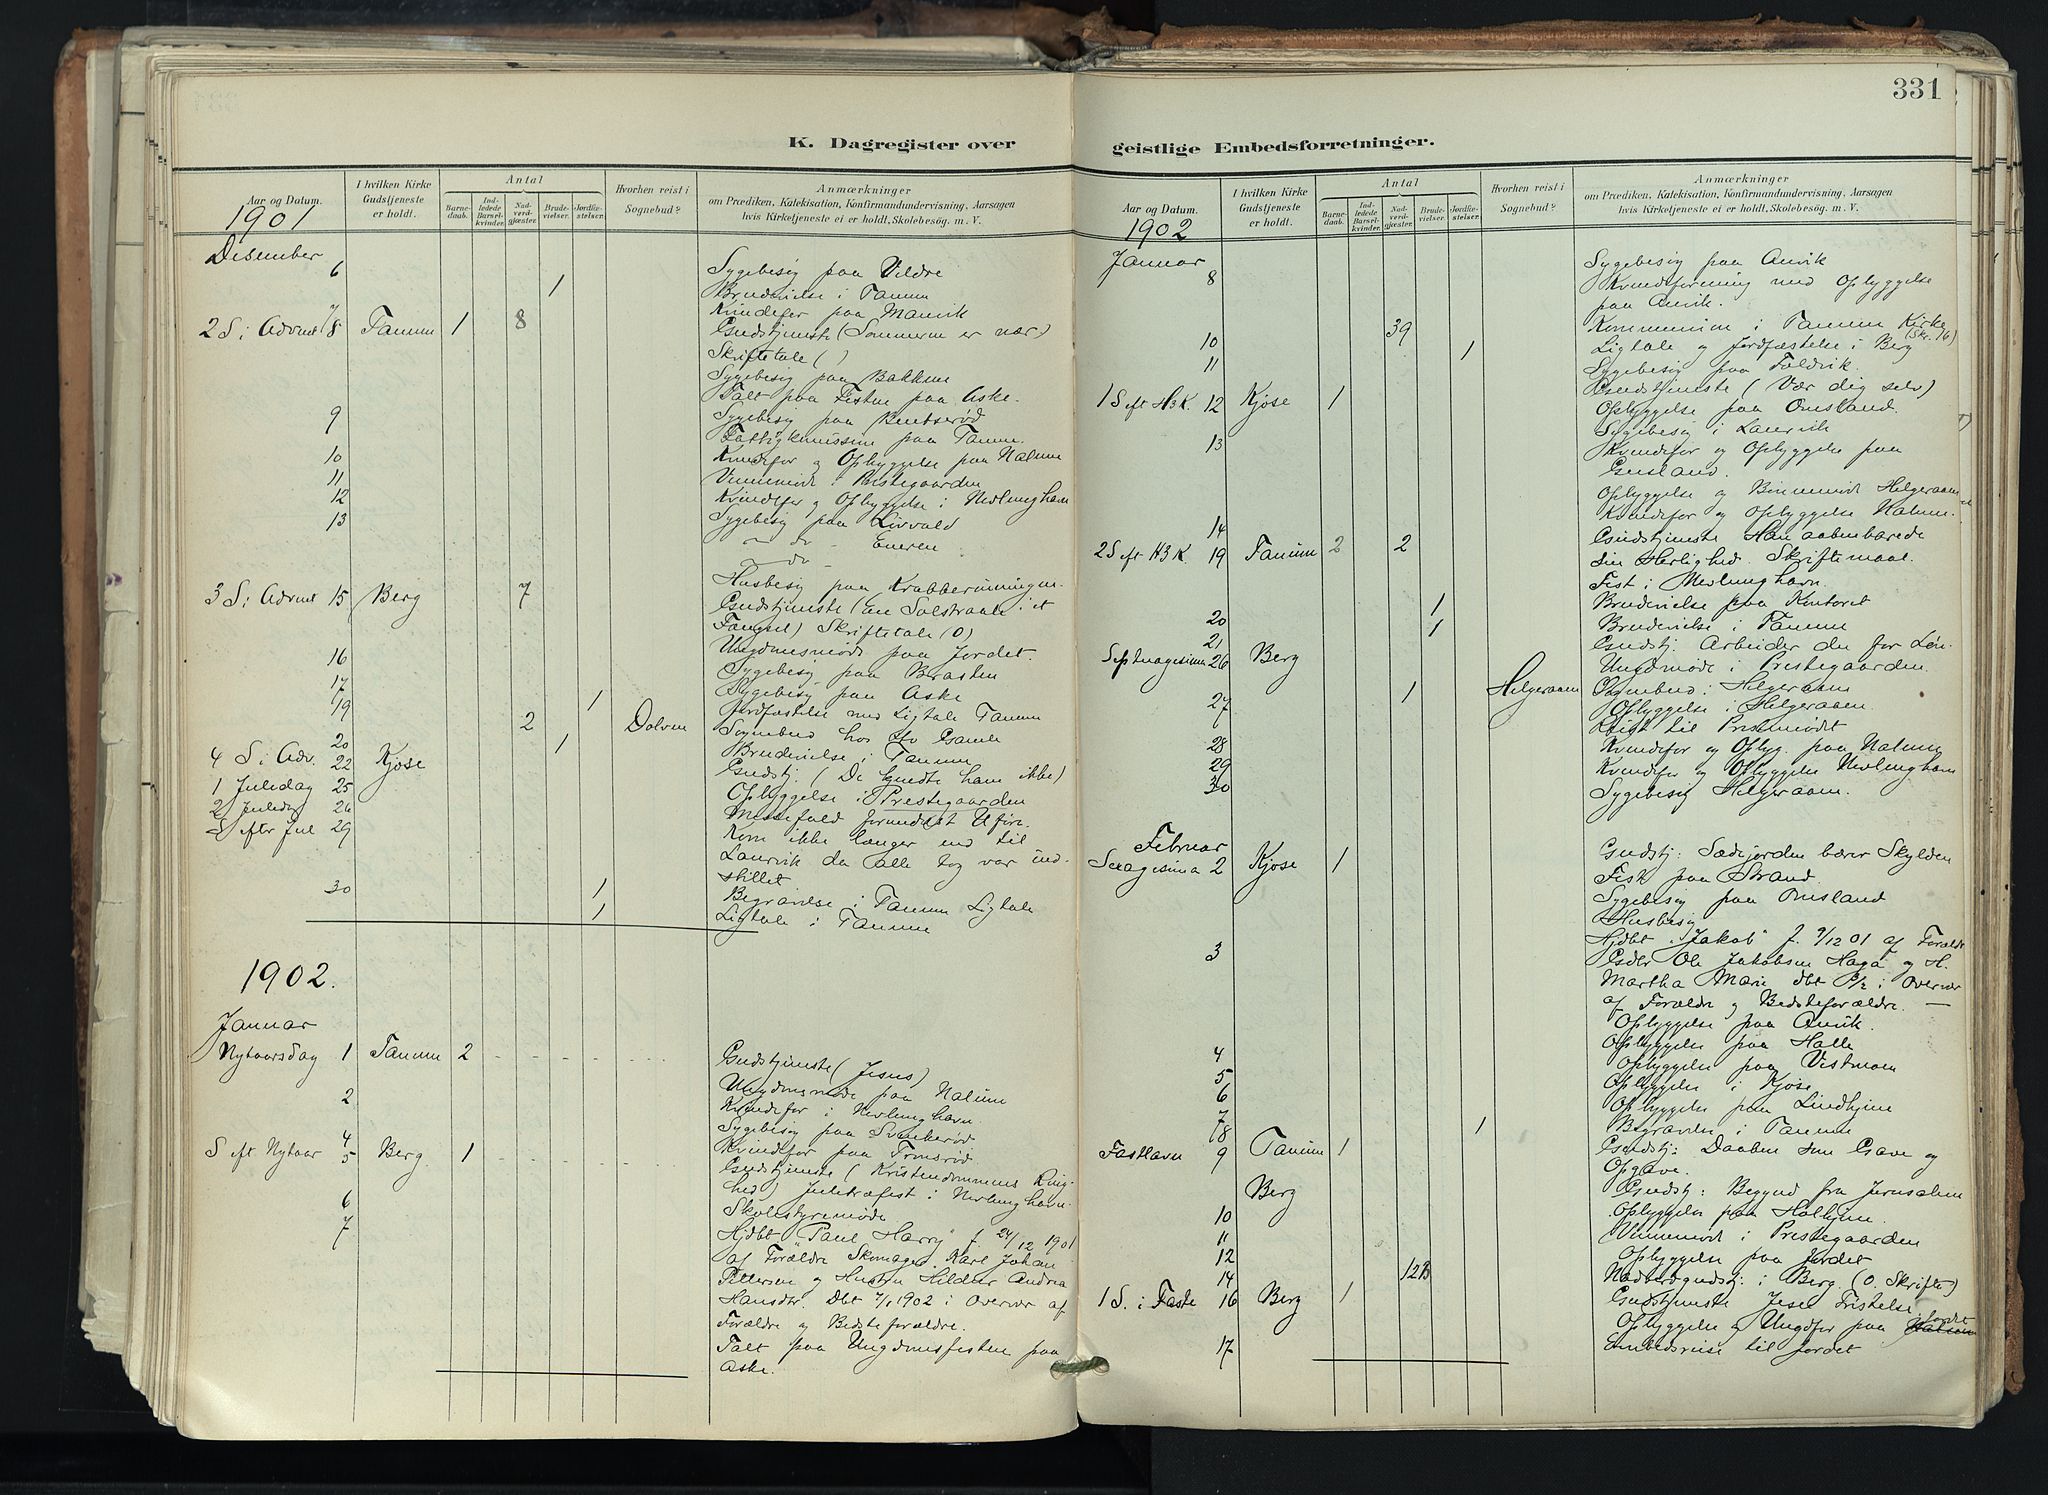 331
K. Dagregister over
Aar og Datum.
I hvilken Kirke Gudstjeneste er holdt.
Antal
Barnedaab.
Indledede Barselkvinder.
Nadverdgjæster.
Brudevielser.
Jordfæstelser.
Hvorhen reist i Sognebud?
Anmærkninger
om Prædiken, Katekisation, Konfirmandundervisning, Aarsagen
hvis Kirketjeneste ei er holdt, Skolebesög. m. V.
1901
Desember
6 Sygebesøg paa Vildre
1 Brudevielse i Tanum
7 Kvindefor paa Manvik
2 S i Advent 8 Tanum 1 8 Gudstjeneste (Sommeren er nær)
Skriftetale ( )
Sygebesøg paa Bakken
Talt paa Festen paa Aske.
9 Sygebesøg paa
Fattigkmissin paa Tanum.
10 Kvindefor og Opbyggelse paa Nalum
11 Vennemøde i Prestegaarden
12 Kvindefor og Opbyggelse i Nevlunghavn
13 Sygebesøg paa
do Eneren
do
Husbesøg paa Krabberønningen
3 S i Advent 15 Berg 7 Gudstjeneste (En Solstraale i et
Fængsel) Skriftetale (0)
16 Ungdomsmøde paa Jordet.
17 Sygebesøg paa Braaten
Sygebesøg paa Aske
19 1 Jordfæstelse med Ligtale Tanum
2 Dolven Sognebud hos Gamle
20 1 Brudevielse i Tanum
4 S i Adv. 22 Kjose Gudstj. (De kjendte ham ikke)
1 Juledag 25 Opbyggelse i Prestegaarden
2 Juledag 26 Messefald formedelst Uføre.
S efter Jul 29 Kom ikke længer end til
Laurvik da alle tog var ind-
stillet
30 1 Begravelse i Tanum Ligtale
1 Ligtale i Tanum
1902.
Januar
Nytaarsdag 1 Tanum 2 Gudstjeneste (Jesus)
Ungdomsmøde paa Nalum
2 Kvindefor i Nevlunghavn.
Sygebesøg paa
4 Kvindefor paa
S eft Nytaar 5 Berg 1 Gudstjeneste (Kristendommens Ring-
hed) Juletræfest i Nevlunghavn.
6 Skolestyremøde
7 Hjdbt "Paul Harry" f. 24/12 1901
af Forældre Skomager Karl Johan
Pettersen og Hustru Hilda Andrea
Hansdtr. Dbt 7/1 1902 i Overvær af
Forældre og Bedsteforældre.
Talt paa Ungdomsfesten paa
Aske.
geistlige Embedsforretninger.
Aar og Datum.
I hvilken Kirke Gudstjeneste er holdt.
Antal
Barnedaab.
Indledede Barselkvinder.
Nadverdgjæster.
Brudevielser.
Jordfæstelser.
Hvorhen reist i Sognebud?
Anmærkninger
om Prædiken, Katekisation, Konfirmandundervisning, Aarsagen
hvis Kirketjeneste ei er holdt, Skolebesög. m. V.
1902
Januar
8 Sygebesøg paa Anvik
Kvindforening med Opbyggelse
paa Anvik.
39 Kommunion i Tanum Kirke (Skr. 16)
10 1 Ligtale og Jordfæstelse i Berg
11 Sygebesøg paa Foldvik.
1 S eft H3K. 12 Kjose 1 Gudstjeneste (Vær dig selv)
Opbyggelse paa Omsland.
13 Sygebesøg i Laurvik
Kvindefor og Opbyggelse paa
Gusland.
Opbyggelse og Helgeraaen
14 Kvindefor og Opbyggelse Nalum.
2 S eft H3K 19 Tanum 2 2 Gudstjeneste Han aabenbarede
sin Herlighed. Skriftemaal.
Fest i Nevlunghavn.
20 1 Brudevielse paa Kontoret
21 1 Brudevielse i Tanum
Septuagesima 26 Berg Gudstj: Arbeider du for Løn.
Ungdmøde i Prestegaarden.
27 1 Helgeraaen Sognebud i Helgeraaen
Opbyggelse i Helgeraaen.
28 Reist til Prestemødet
29 Kvindefor og Opbyg. paa Nalum
30 Kvindefor og Opbyggelse Nevlunghavn
Sygebesøg Helgeraaen.
Februar
Sexagesima 2 Kjose 1 Gudstj: Sædejorden bærer Skylden
Fest paa Strand
Sygebesøg paa Omsland
Husbesøg
3 Hjdbt "Jakob" f. 9/12 01 af Foræld
Gdbr Ole Jakobsen Haga og H.
Martha Marie dbt 3/2 i Overvær
af Forældre og Bedsteforældre. —
Opbyggelse paa Anvik.
4 Opbyggelse paa Halle
5 Opbyggelse paa Vestmoen
6 Opbyggelse i Kjose
7 Opbyggelse paa Lindhjem
8 1 Begravelse i Tanum
Fastlavn 9 Tanum 1 Gudstj: Daaben som Gave og
Opgave.
Berg Gudstj: Begynd fra Jerusalem
10 Opbyggelse paa Holhjem.
11 Vennemøde i Prestegaarden
12 Opbyggelse paa Jordet
14 12 Nadverdgudstj: i Berg (0. Skrifte)
1 S. i Faste 16 Berg 1 Gudstjeneste Jesu Fristelse.
Opbyggelse og Ungdfor paa Jordet
17 Embedsreise til Jordet